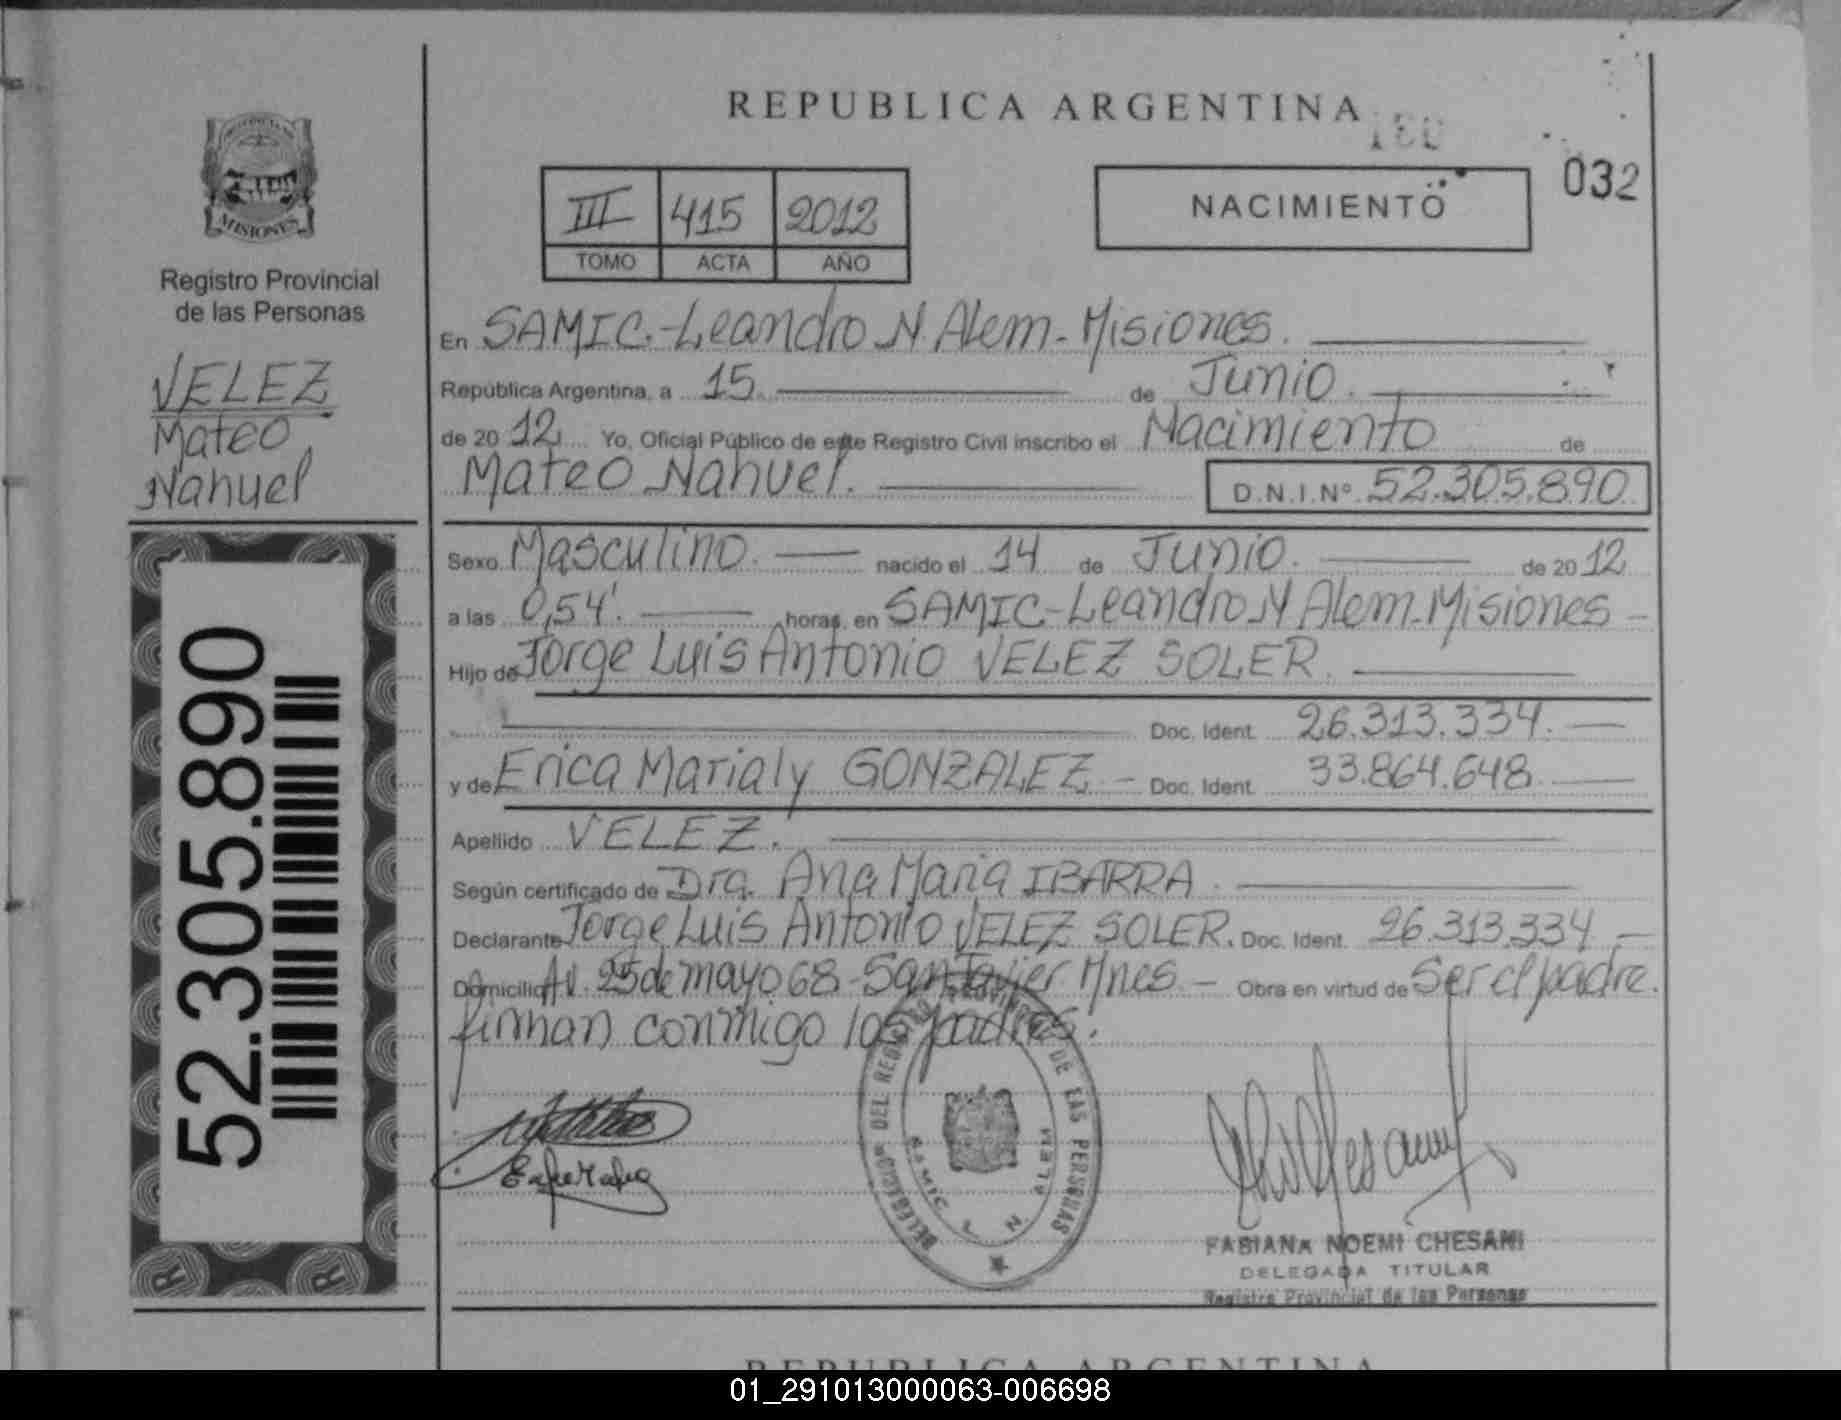 REPUBLICA ARGENTINA
032
III 415 2012
TOMO ACTA AÑO
NACIMIENTO
MISIONES
Registro Provincial
de las Personas
VELEZ
Mateo
Nahuel
52.305.890
En SAMIC.-Leandro N Alem-Misiones.
República Argentina, a 15 de Junio.
de 2012 Yo, Oficial Público de este Registro Civil inscribo el Nacimiento de
Mateo Nahuel. D.N.I.Nº 52.305.890
Sexo Masculino. nacido el 14 de Junio. de 2012
a las 0,54'. horas, en SAMIC-Leandro N Alem-Misiones-
Hijo de Jorge Luis Antonio VELEZ SOLER.
Doc. Ident. 26.313.334.
y de Erica Marialy GONZALEZ - Doc. Ident. 33.864.648
Apellido VELEZ.
Según certificado de Dra. Ana Maria IBARRA.
Declarante Jorge Luis Antonio VELEZ SOLER. Doc. Ident. 26.313.334
Domicilio Av. 25 de mayo 68-San Javier Mnes.- Obra en virtud de Ser el padre.
firman conmigo los padres.
DELEGACION DEL REGISTRO PROVINCIAL DE LAS PERSONAS
SAMIC L N ALEM
FABIANA NOEMI CHESANI
DELEGADA TITULAR
Registro Provincial de las Personas
REPUBLICA ARGENTINA
01_291013000063-006698